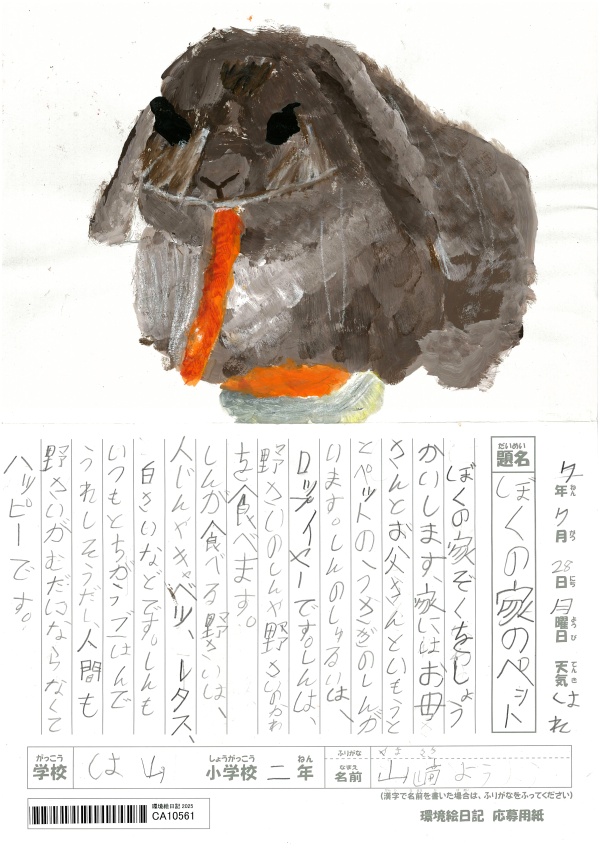 7年7月28日月曜日 天気 はれ
ねん がつ にち ようび てんき
だいめい
題名 ぼくの家のペット
ぼくの家ぞくをしょう
かいします。家にはお母
さんとお父さんといもうと
とペットのうさぎのしんが
います。しんのしゅるいは、
ロップイヤーです。しんは、
野さいのしんや野さいのかわ
を食べます。
しんが食べる野さいは、
人じんやキャベツ、レタス、
白さいなどです。しんも
いつもとちがうごはんで
うれしそうだし人間も
野さいがむだにならなくて
ハッピーです。
がっこう しょうがっこう ねん ふりがな
学校 しは山 小学校 二年
なまえ
名前 山﨑 よう
(漢字で名前を書いた場合は、ふりがなをふってください)
環境絵日記2025
CA10561
環境絵日記 応募用紙